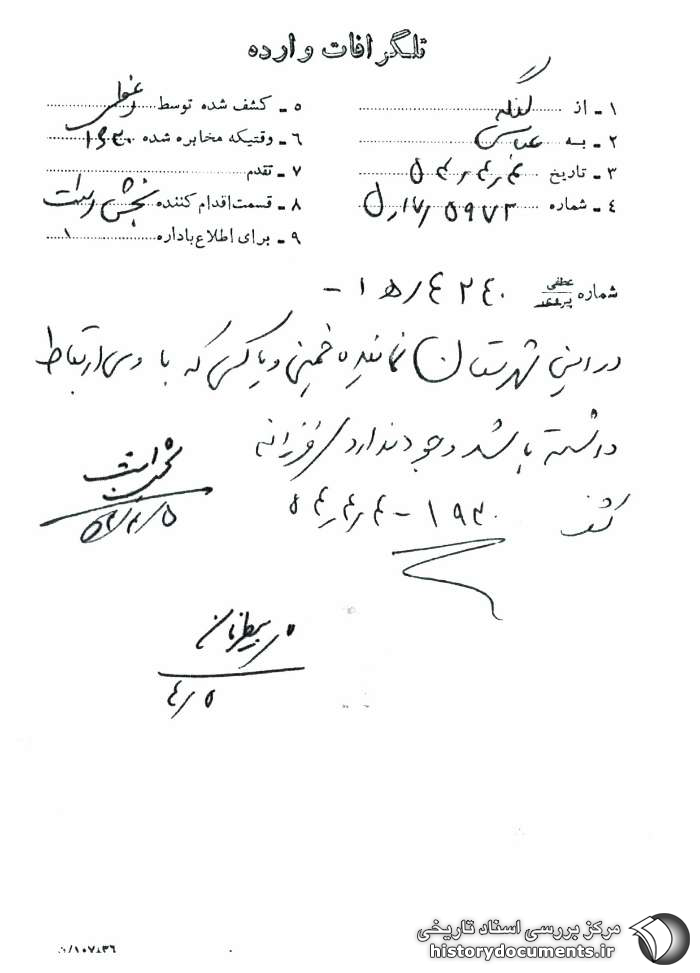 تلگرافات وارده
۱ - از لنگه
۲ - به عباس
۳ - تاریخ ۵۴٫۴٫۴
۴ - شماره ۵۹۷۳
۵ - کشف شده توسط
۶ - وقتیکه مخابره شده ۱۹۳۰
۷ - تقدم
۸ - قسمت اقدام کننده بخش
۹ - برای اطلاع باداره ۱
شماره عطفی پیرو ۴۲۴۰ / ه‍ ۱ -
در این شهرستان نماینده خمینی و یا کسی که با وی ارتباط
داشته باشد وجود ندارد. فرزانه
کشف ۱۹۳۰ - ۵۴٫۴٫۴
۵۴/۴/۵
۴٫۵
۱۰۷۸۳۶/ن
مرکز بررسی اسناد تاریخی
historydocuments.ir